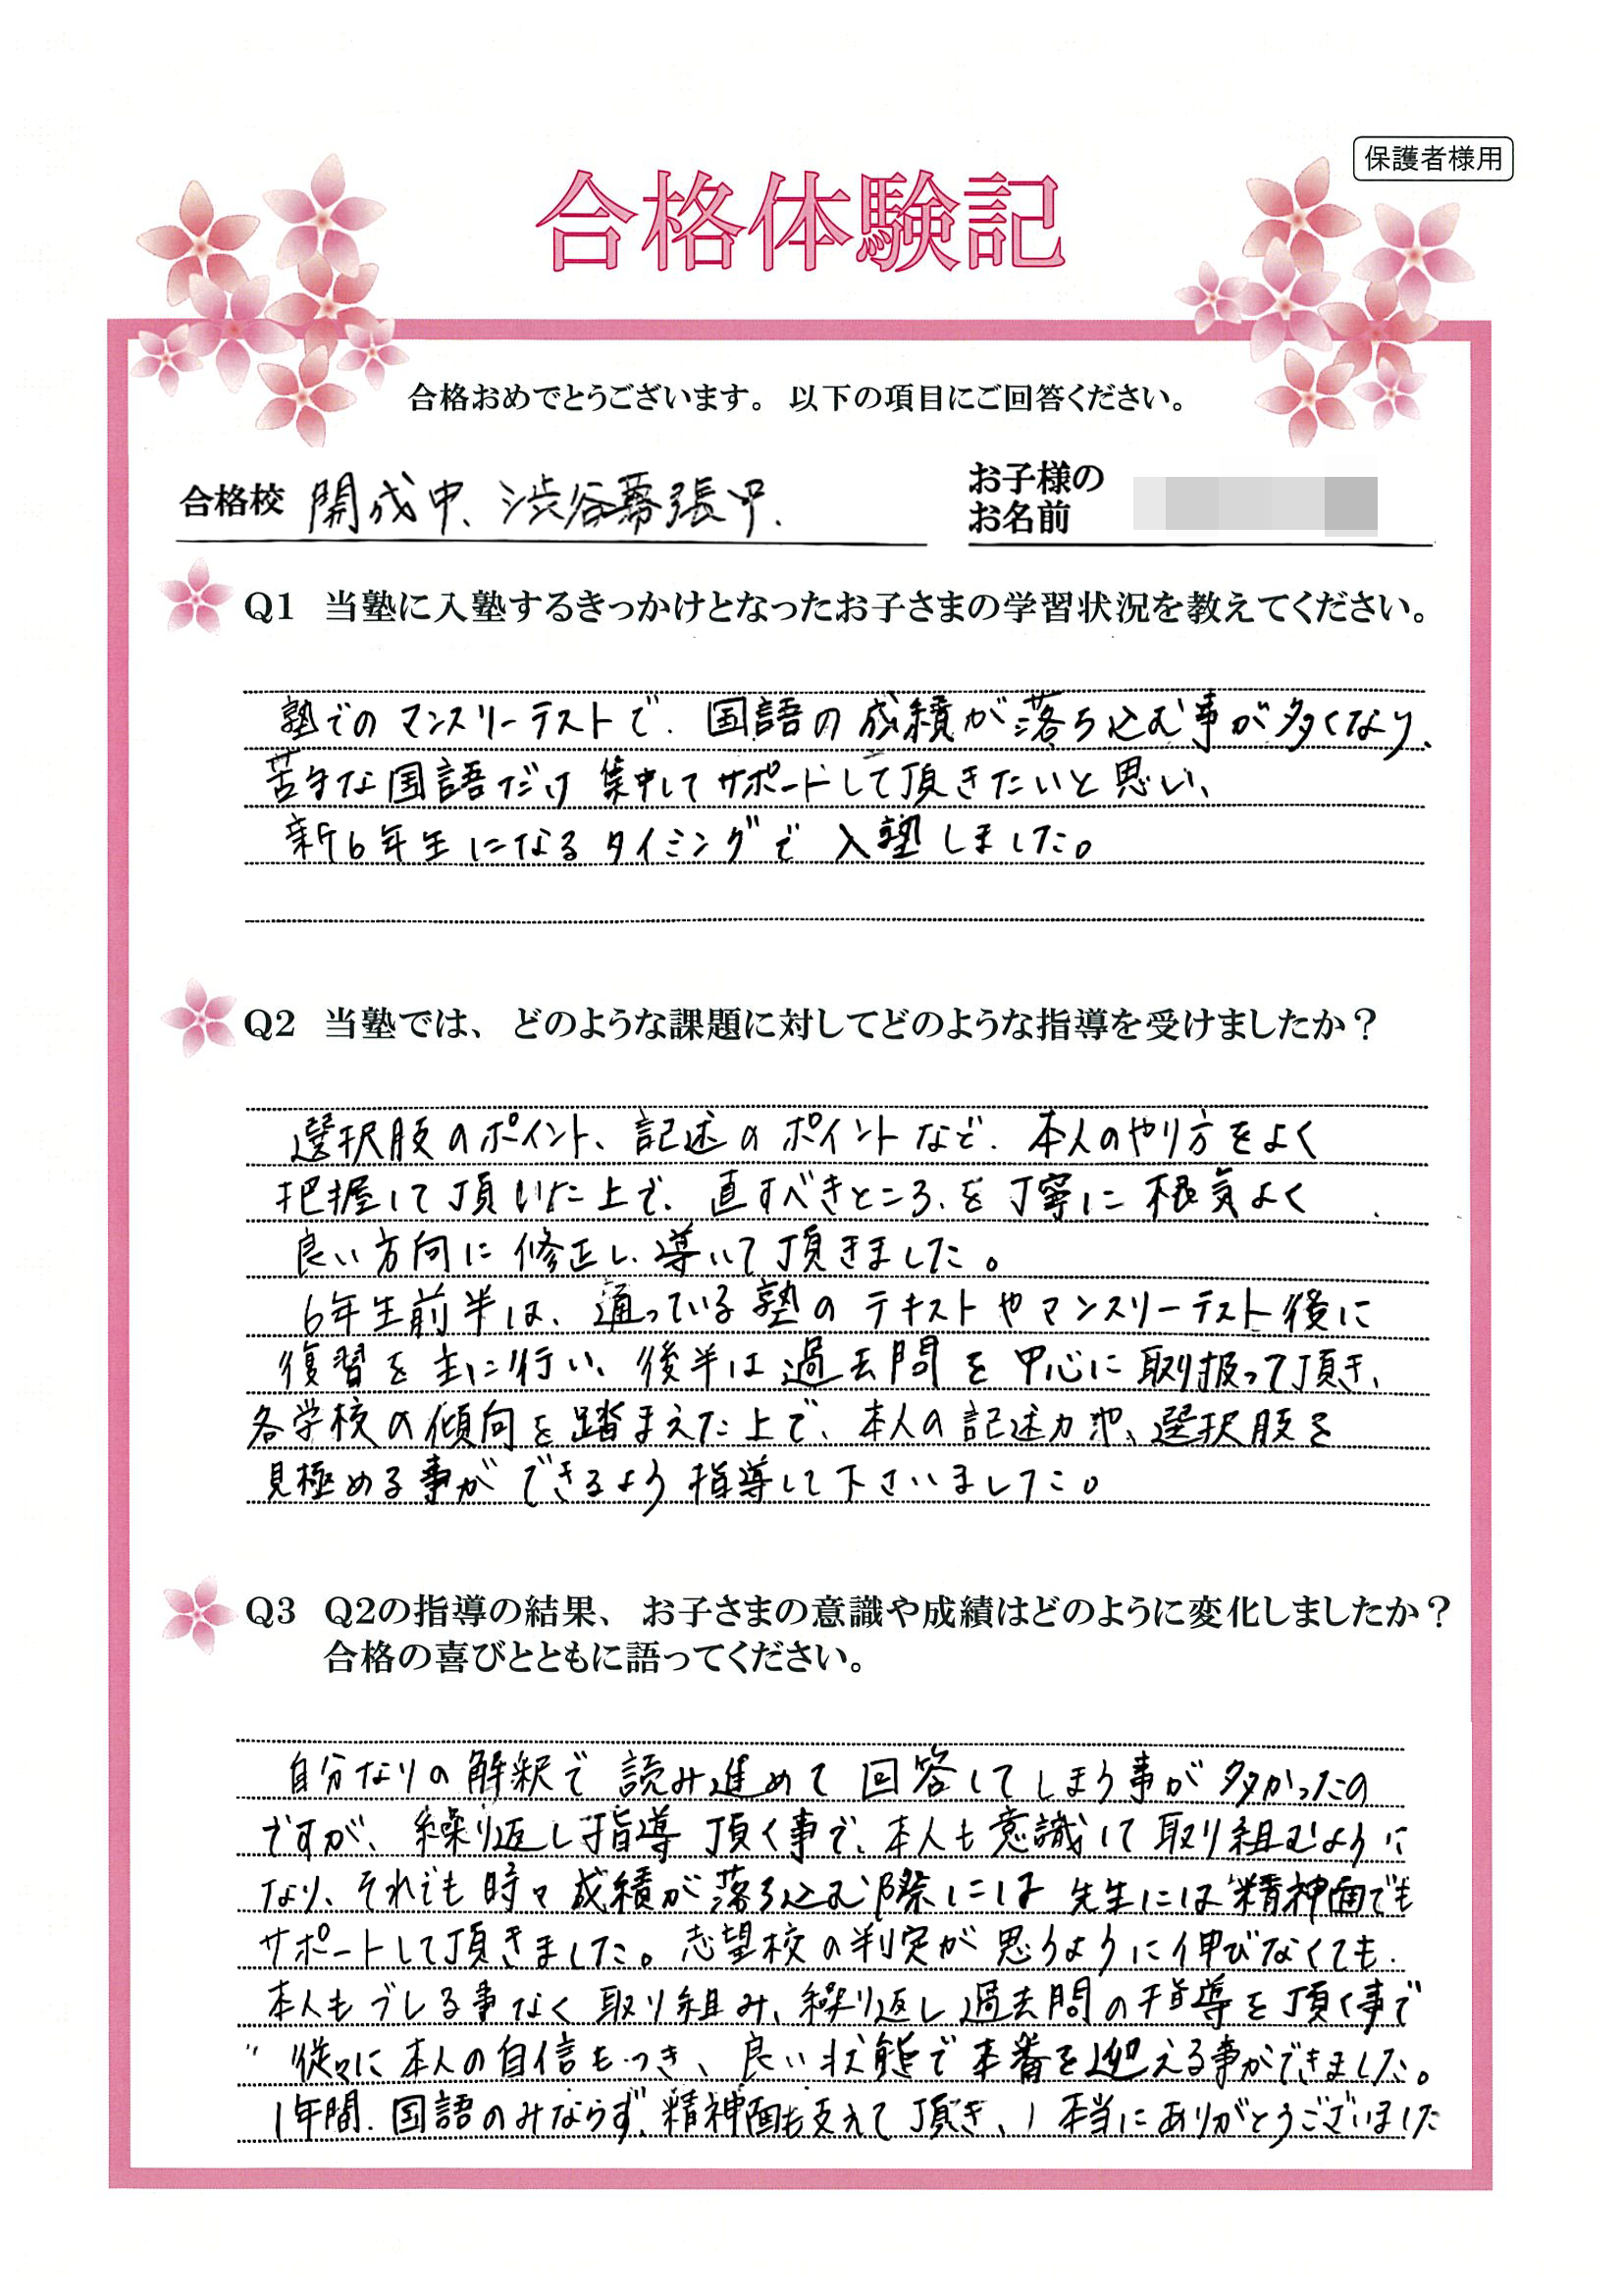 保護者様用
合格体験記
合格おめでとうございます。 以下の項目にご回答ください。
合格校 開成中、渋谷幕張中、
お子様の
お名前
Q1 当塾に入塾するきっかけとなったお子さまの学習状況を教えてください。
塾でのマンスリーテストで、国語の成績が落ち込む事が多くなり、
苦手な国語だけ集中してサポートして頂きたいと思い、
新6年生になるタイミングで入塾しました。
Q2 当塾では、どのような課題に対してどのような指導を受けましたか？
選択肢のポイント、記述のポイントなど、本人のやり方をよく
把握して頂いた上で、直すべきところを丁寧に根気よく
良い方向に修正し、導いて頂きました。
6年生前半は、通っている塾のテキストやマンスリーテスト後に
復習を主に行い、後半は過去問を中心に取り扱って頂き、
各学校の傾向を踏まえた上で、本人の記述力や、選択肢を
見極める事ができるよう指導して下さいました。
Q3 Q2の指導の結果、お子さまの意識や成績はどのように変化しましたか？
合格の喜びとともに語ってください。
自分なりの解釈で読み進めて回答してしまう事が多かったの
ですが、繰り返し指導頂く事で、本人も意識して取り組むように
なり、それでも時々成績が落ち込む際には先生には精神面でも
サポートして頂きました。志望校の判定が思うように伸びなくても、
本人もブレる事なく取り組み、繰り返し過去問の指導を頂く事で
従々に本人の自信もつき、良い状態で本番を迎える事ができました。
1年間、国語のみならず、精神面も支えて頂き、本当にありがとうございました